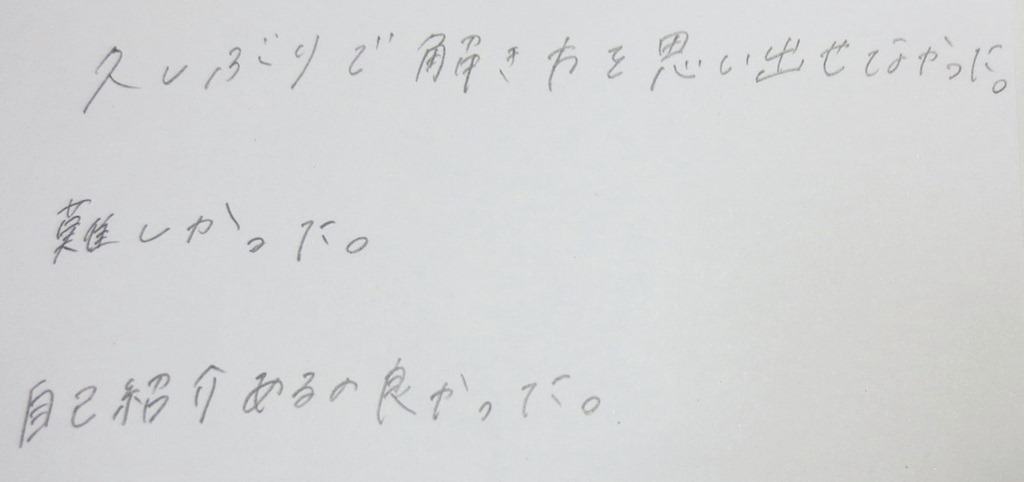 久しぶりで解き方を思い出せなかった。
難しかった。
自己紹介あるの良かった。